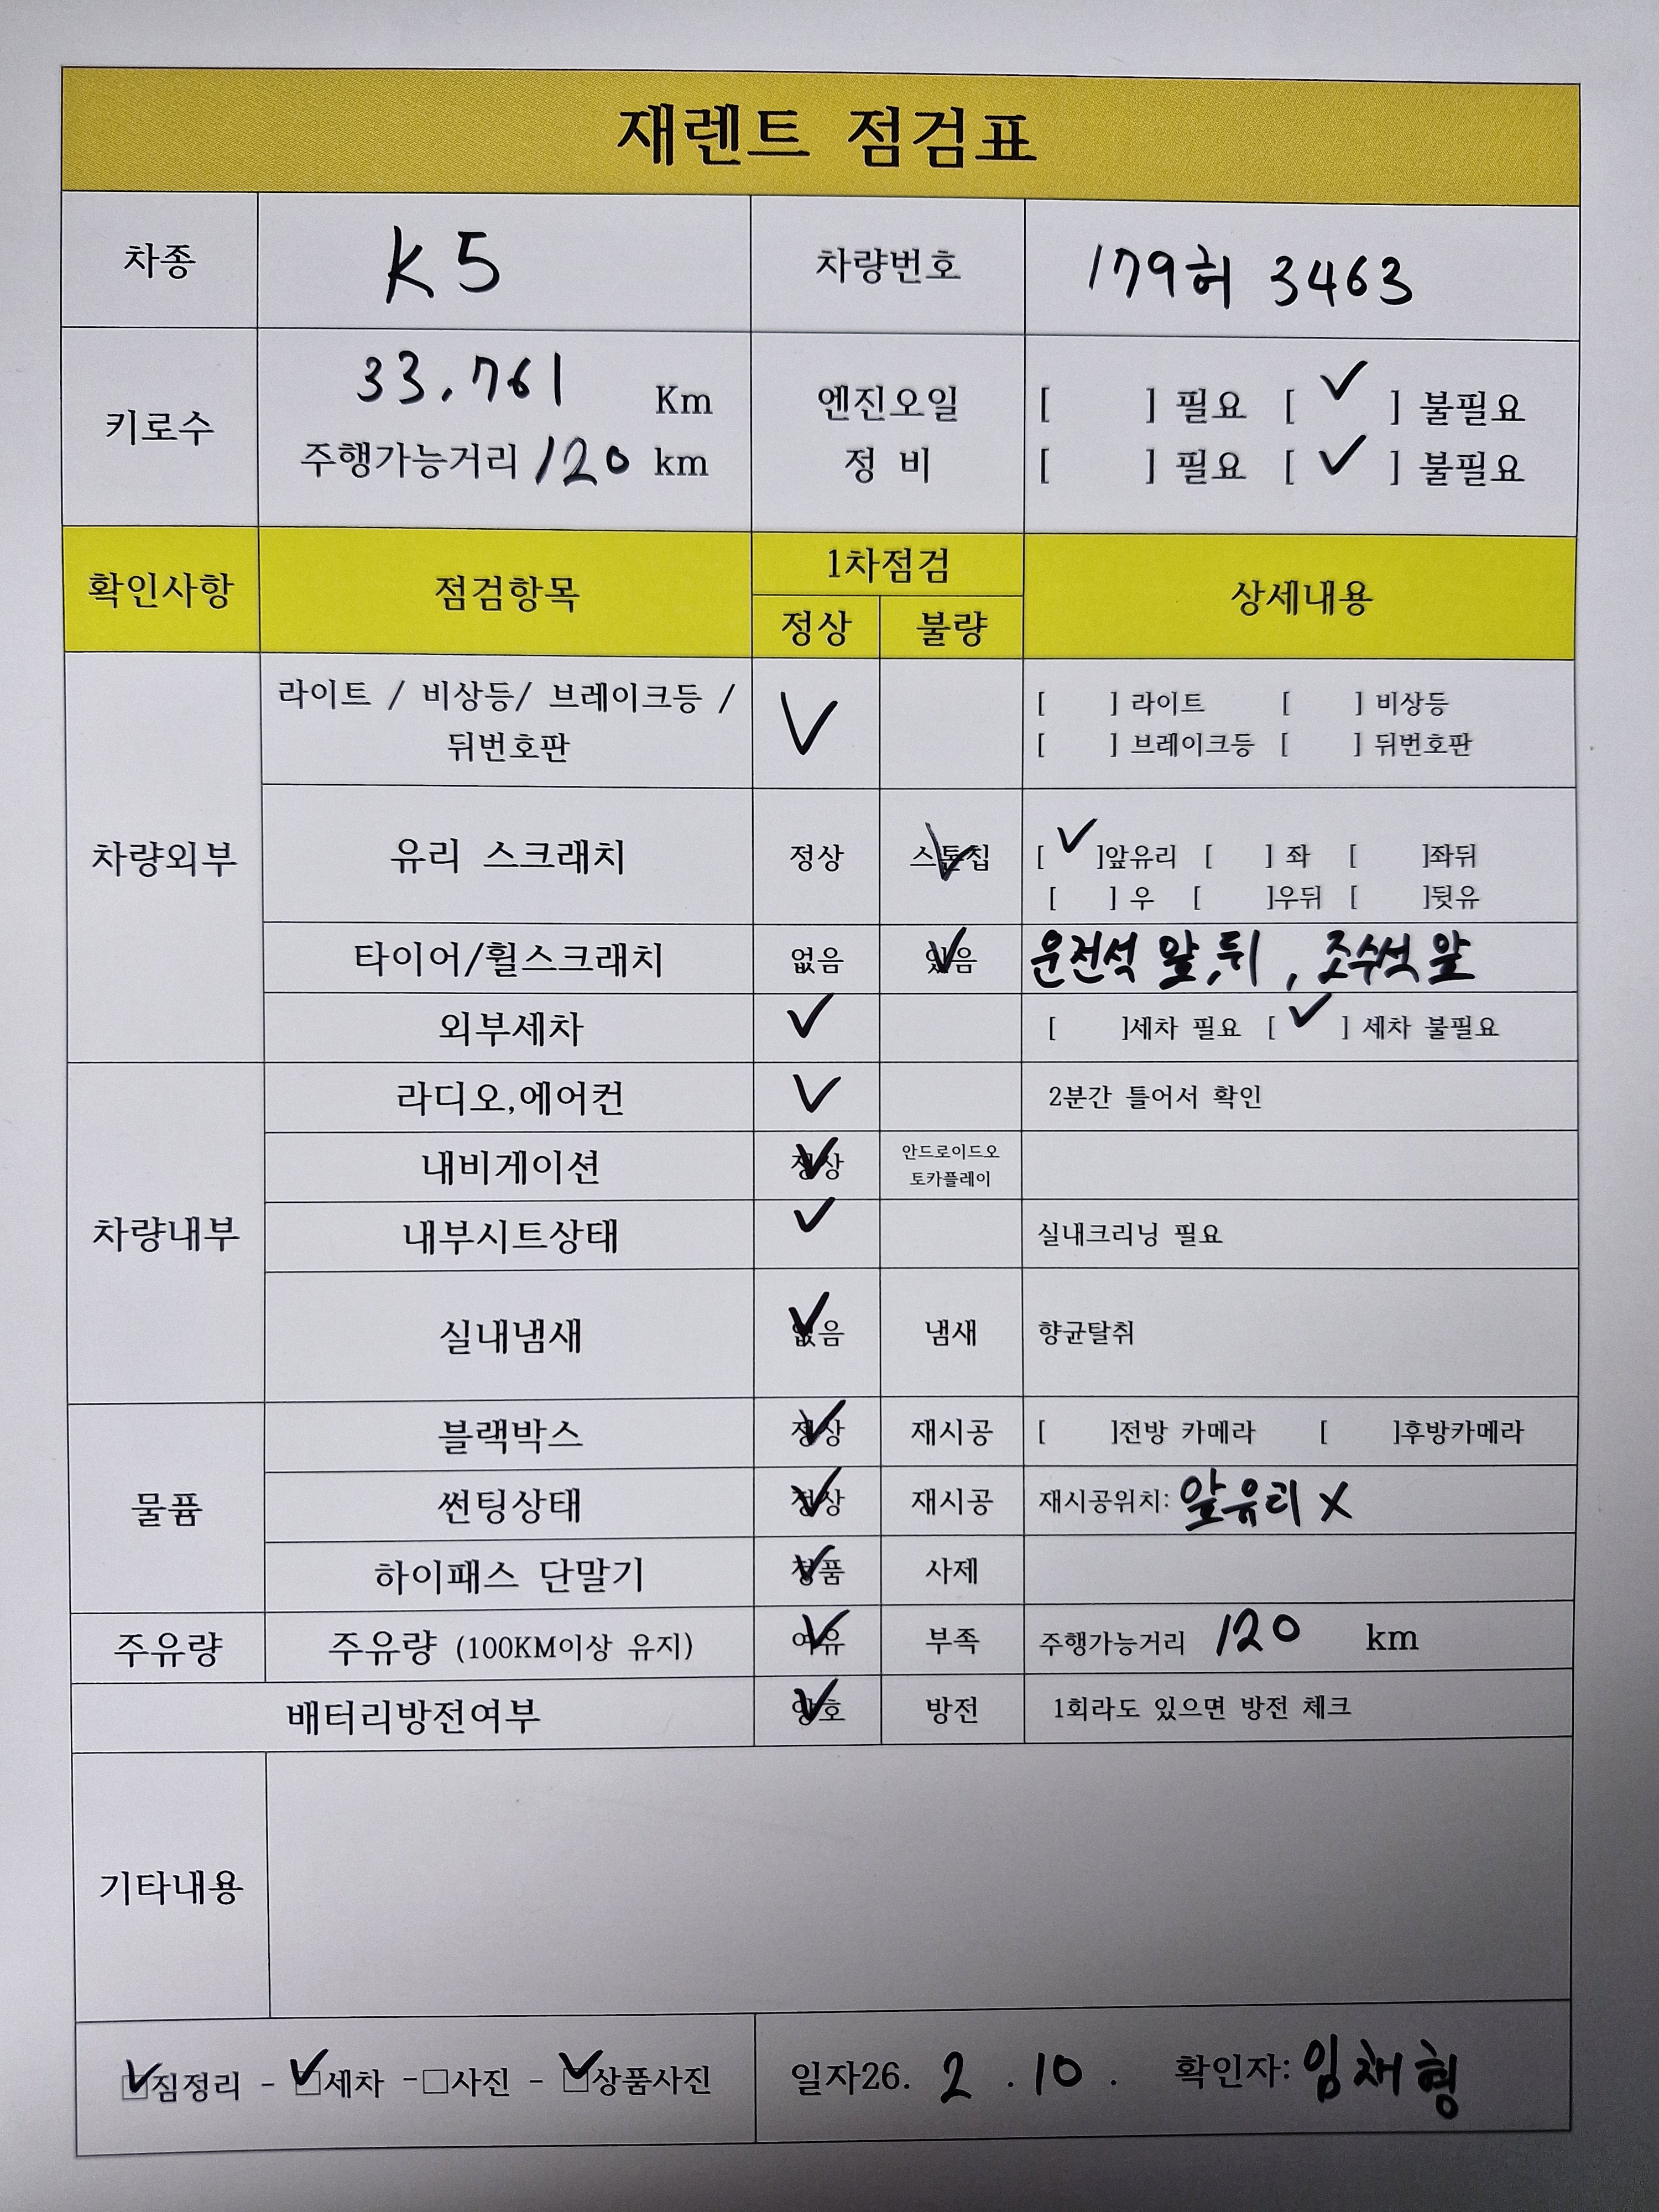 재렌트 점검표
차종 K5 차량번호 179허 3463
키로수 33,761 Km 엔진오일 [ ] 필요 [ ✓ ] 불필요
주행가능거리 120 km 정 비 [ ] 필요 [ ✓ ] 불필요
확인사항 점검항목 1차점검 상세내용
정상 불량
차량외부 라이트 / 비상등/ 브레이크등 / ✓ [ ] 라이트 [ ] 비상등
뒤번호판 [ ] 브레이크등 [ ] 뒤번호판
유리 스크래치 정상 스톤칩 ✓ [ ✓ ]앞유리 [ ] 좌 [ ]좌뒤
[ ] 우 [ ]우뒤 [ ]뒷유
타이어/휠스크래치 없음 있음 ✓ 운전석 앞,뒤 , 조수석 앞
외부세차 ✓ [ ]세차 필요 [ ✓ ] 세차 불필요
차량내부 라디오,에어컨 ✓ 2분간 틀어서 확인
내비게이션 정상 ✓ 안드로이드오
토카플레이
내부시트상태 ✓ 실내크리닝 필요
실내냄새 없음 ✓ 냄새 향균탈취
물품 블랙박스 정상 ✓ 재시공 [ ]전방 카메라 [ ]후방카메라
썬팅상태 정상 ✓ 재시공 재시공위치: 앞유리 X
하이패스 단말기 정품 ✓ 사제
주유량 주유량 (100KM이상 유지) 여유 ✓ 부족 주행가능거리 120 km
배터리방전여부 양호 ✓ 방전 1회라도 있으면 방전 체크
기타내용
☑짐정리 - ☑세차 -☐사진 - ☑상품사진 일자26. 2 . 10 . 확인자: 임채형